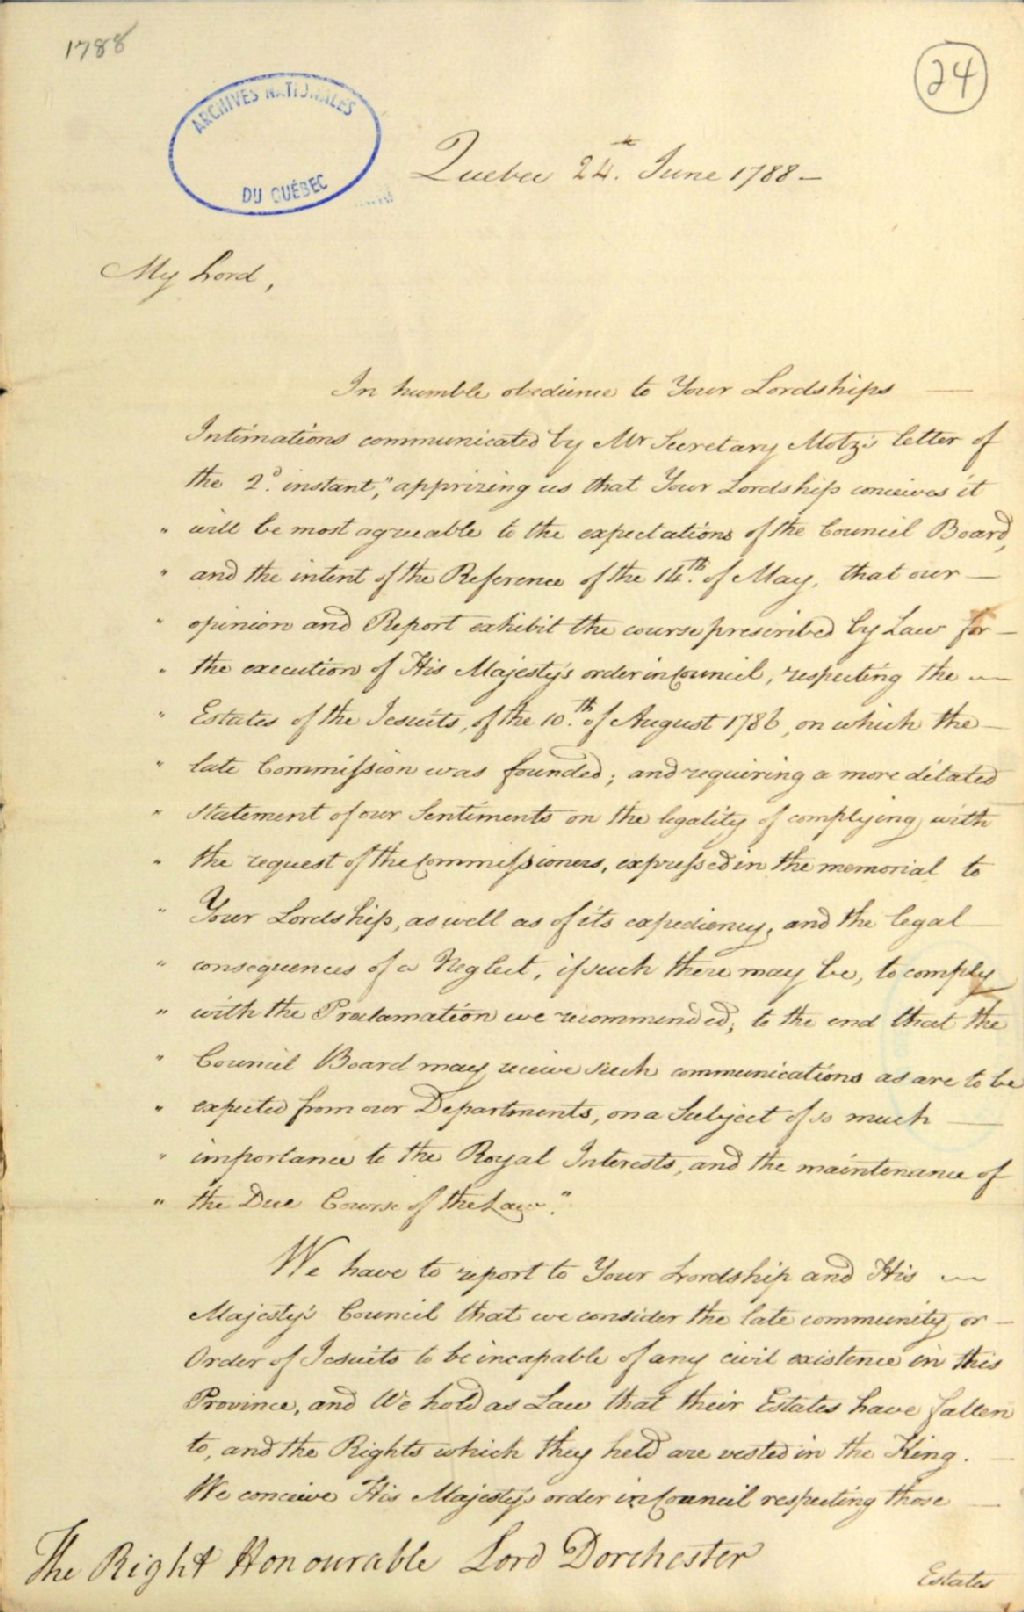 1788
24
ARCHIVES NATIONALES
DU QUÉBEC
Quebec 24th. June 1788 —
My Lord,
In humble obedience to Your Lordships —
Intimations communicated by Mr Secretary Motz's letter of
the 2d. instant, "apprizing us that Your Lordship conceives it
" will be most agreeable to the expectations of the Council Board,
" and the intent of the Reference of the 14th. of May, that our —
" opinion and Report exhibit the course prescribed by Law for —
" the execution of His Majesty's order in Council, respecting the —
" Estates of the Jesuits, of the 10th. of August 1786, on which the —
" late Commission was founded; and requiring a more dilated
" statement of our Sentiments on the legality of complying with
" the request of the Commissioners, expressed in the memorial to
" Your Lordship, as well as of its expediency, and the legal
" consequences of a Neglect, if such there may be, to comply
" with the Proclamation we recommended; to the end that the
" Council Board may receive such communications as are to be
" expected from our Departments, on a Subject of so much —
" importance to the Royal Interests, and the maintenance of
" the Due Course of the Law."
We have to report to Your Lordship and His —
Majesty's Council that we consider the late community or —
Order of Jesuits to be incapable of any civil existence in this
Province, and We hold as Law that their Estates have fallen
to, and the Rights which they held are vested in the King. —
We conceive His Majesty's order in Council respecting those —
The Right Honourable Lord Dorchester
Estates